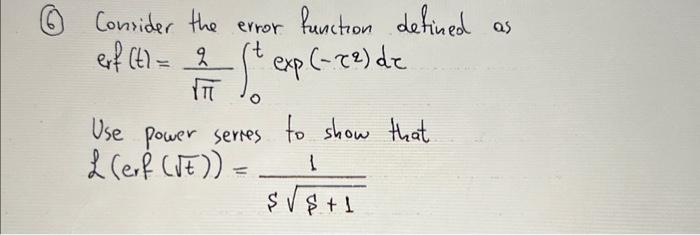 ⑥ Consider the error function defined as
erf(t) = 2/√π ∫₀ᵗ exp(-τ²) dτ
Use power series to show that
ℒ(erf(√t)) = 1/(s√(s+1))